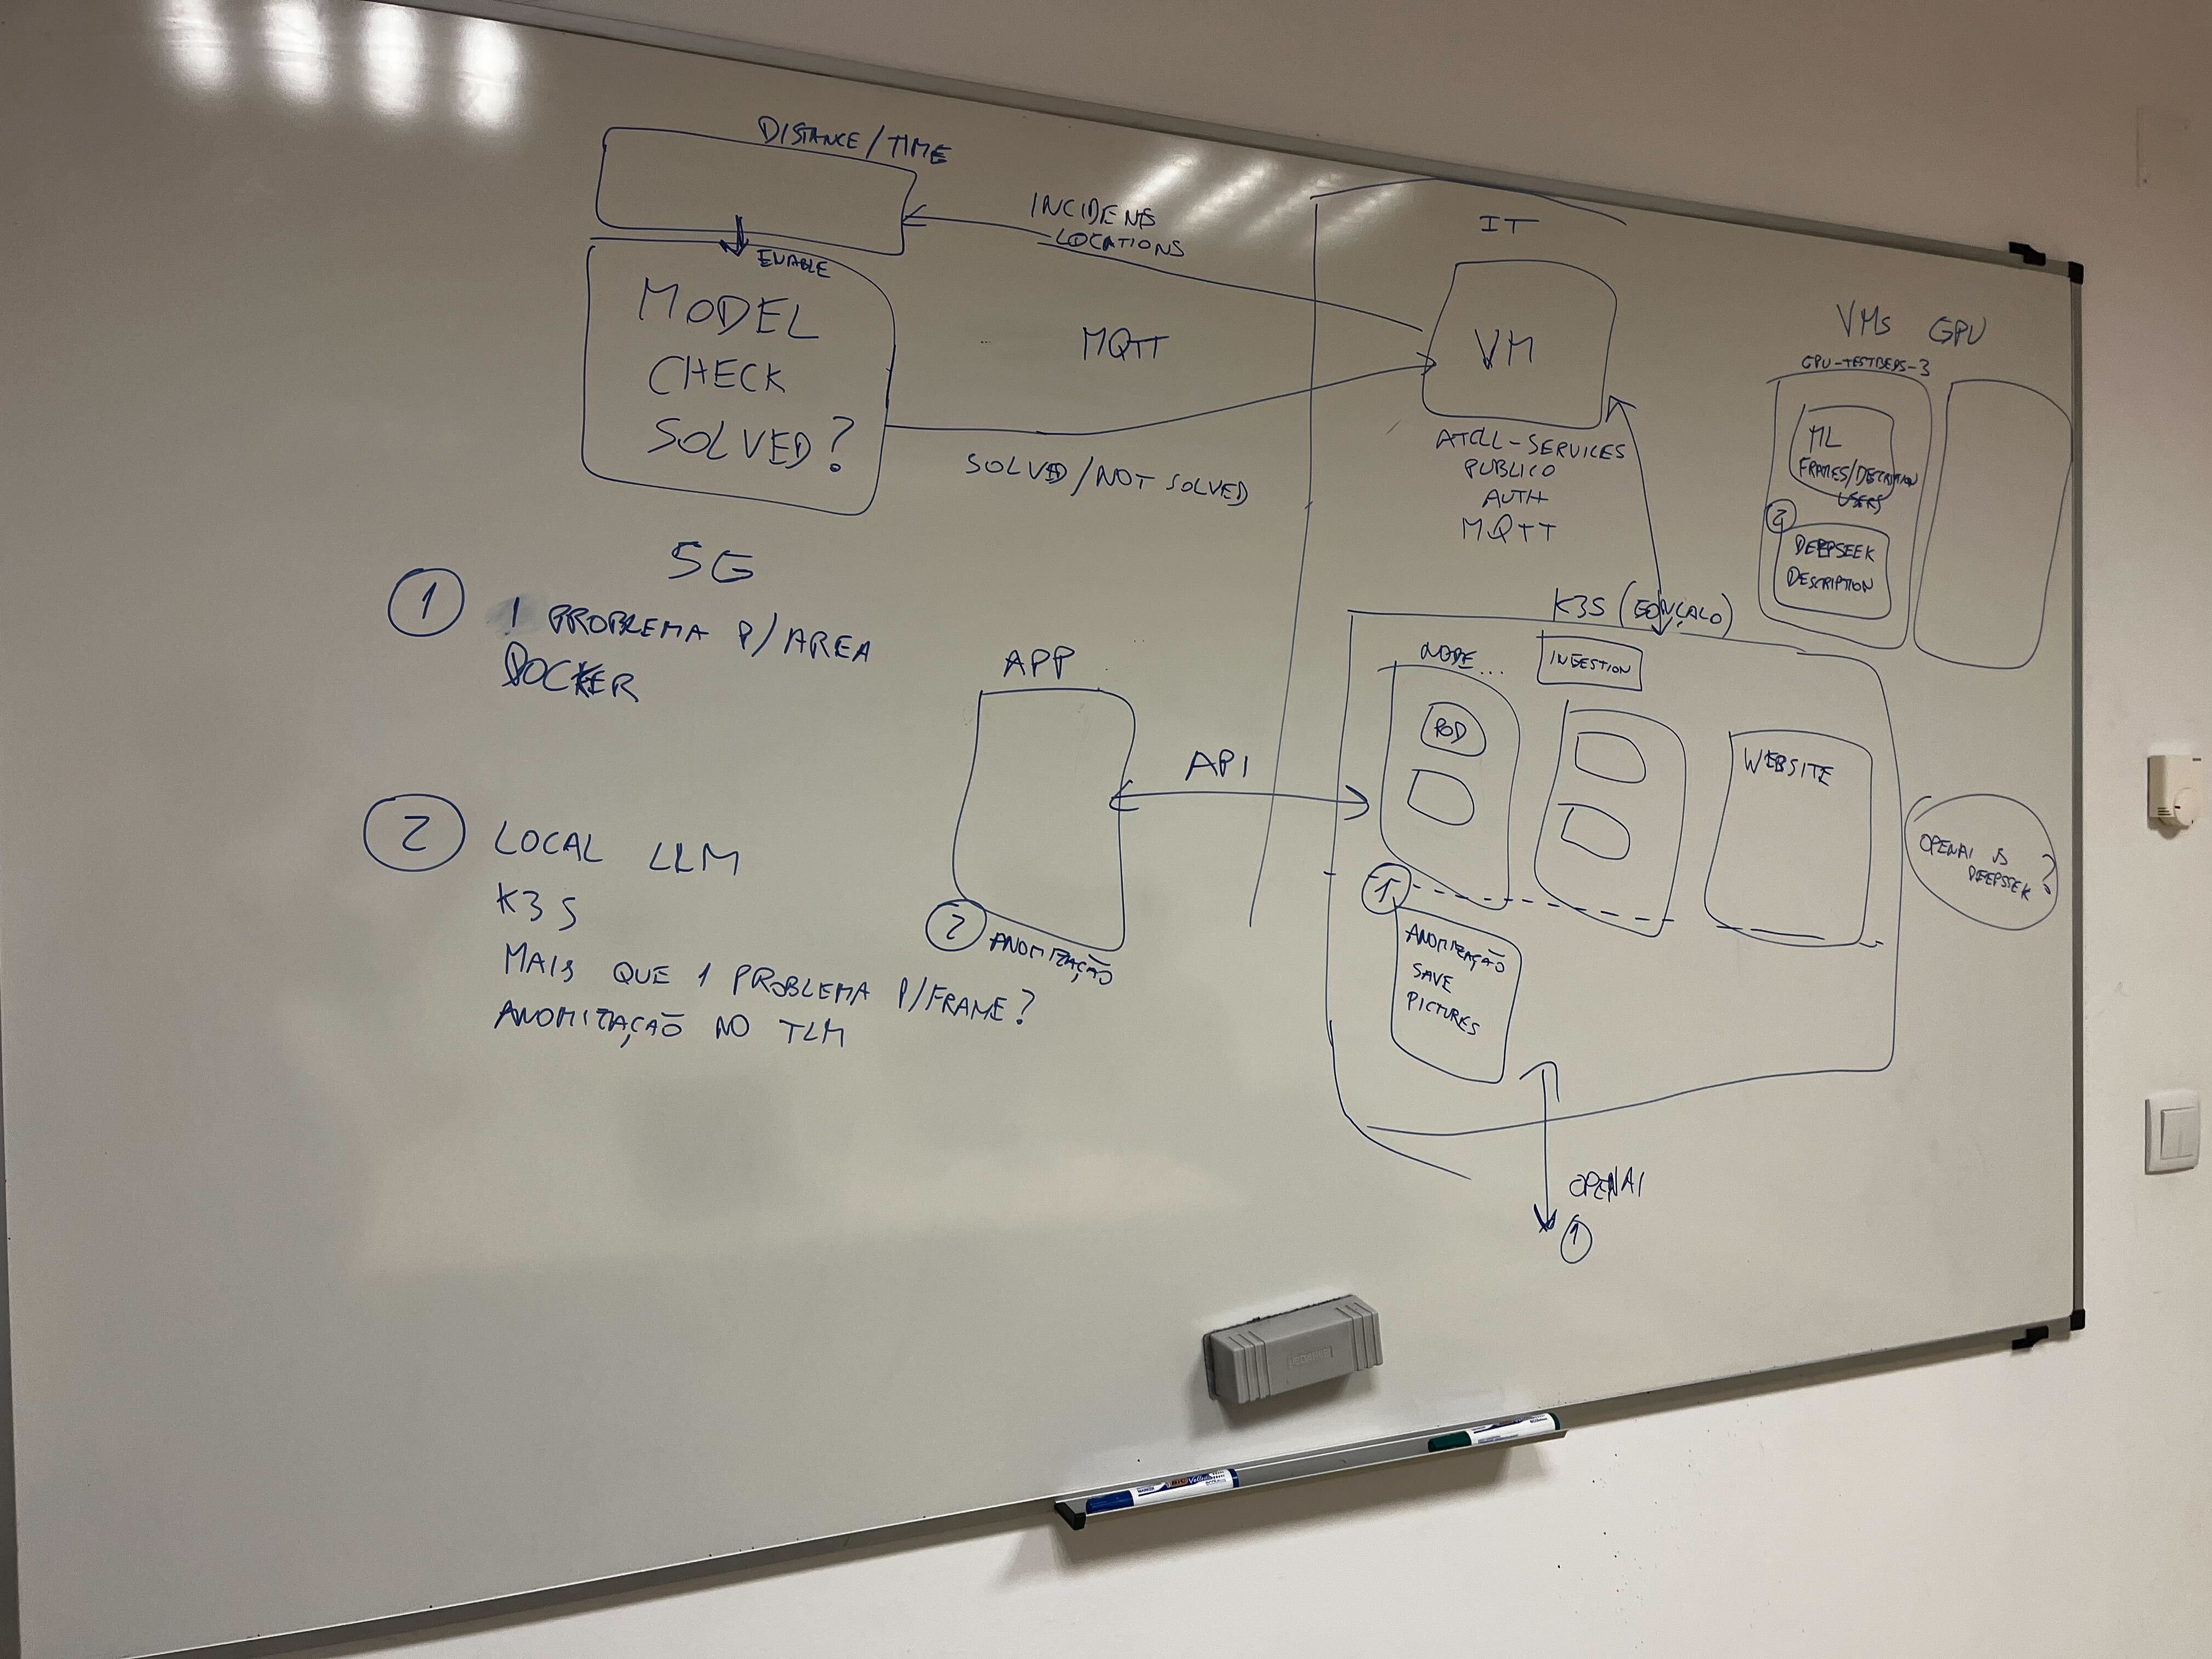 DISTANCE/TIME
ENABLE
MODEL
CHECK
SOLVED?
INCIDENS
LOCATIONS
MQTT
SOLVED/NOT SOLVED
5G
IT
VM
ATCLL-SERVICES
PUBLICO
AUTH
MQTT
VMs GPU
GPU-TESTBEDS-3
ML
FRAMES/DESCRIPTION
USERS
2
DEEPSEEK
DESCRIPTION
1
1 PROBLEMA P/AREA
DOCKER
2
LOCAL LLM
K3S
MAIS QUE 1 PROBLEMA P/FRAME?
ANOMIZAÇÃO NO TLM
APP
2
ANOMIZAÇÃO
API
K3S (GONÇALO)
NODE ...
INGESTION
POD
WEBSITE
1
ANOMIZAÇÃO
SAVE
PICTURES
OPENAI VS
DEEPSEEK ?
OPENAI
1